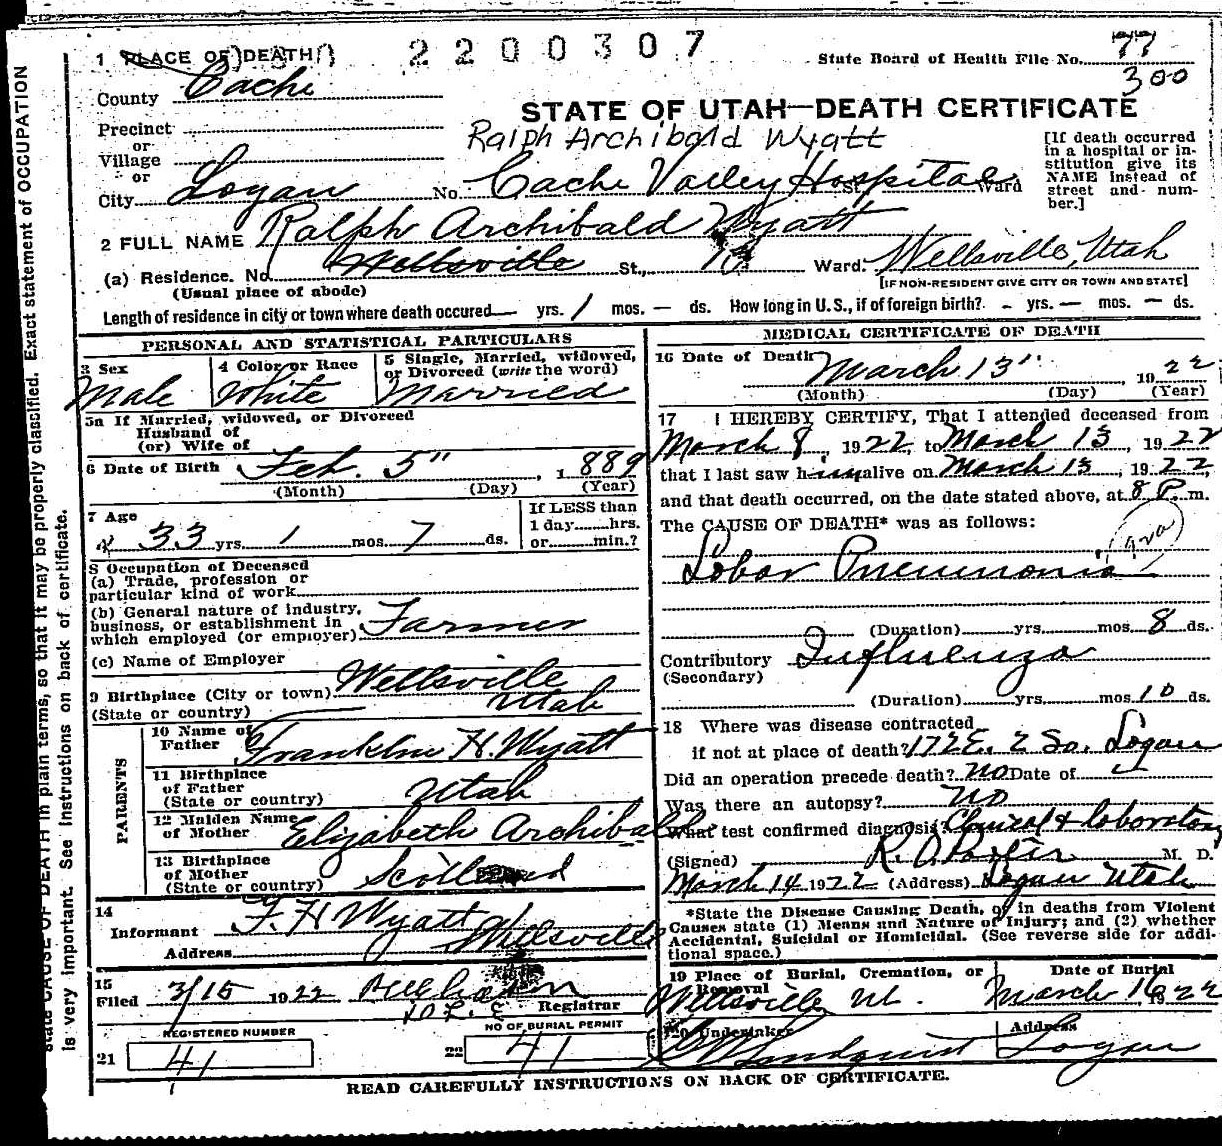 1 PLACE OF DEATH
2200307
State Board of Health File No. 77
300
County Cache
STATE OF UTAH—DEATH CERTIFICATE
Precinct
or
Village
or
Ralph Archibald Wyatt
[If death occurred in a hospital or in-
stitution give its
NAME instead of
street and num-
ber.]
City Logan No. Cache Valley Hospital St. Ward
2 FULL NAME Ralph Archibald Wyatt
(a) Residence. No. Wellsville St., Ward. Wellsville, Utah
(Usual place of abode)
[IF NON-RESIDENT GIVE CITY OR TOWN AND STATE]
Length of residence in city or town where death occured — yrs. 1 mos. — ds. How long in U.S., if of foreign birth? - yrs. — mos. — ds.
PERSONAL AND STATISTICAL PARTICULARS
3 Sex
Male
4 Color or Race
White
5 Single, Married, widowed,
or Divorced (write the word)
Married
5a If Married, widowed, or Divorced
Husband of
(or) Wife of
6 Date of Birth Feb. 5", 1889
(Month) (Day) (Year)
7 Age
33 yrs 1 mos. 7 ds.
If LESS than
1 day hrs.
or min.?
8 Occupation of Deceased
(a) Trade, profession or
particular kind of work
(b) General nature of industry,
business, or establishment in
which employed (or employer) Farmer
(c) Name of Employer
9 Birthplace (City or town) Wellsville
(State or country) Utah
PARENTS
10 Name of
Father Franklin H. Wyatt
11 Birthplace
of Father
(State or country) Utah
12 Maiden Name
of Mother Elizabeth Archibald
13 Birthplace
of Mother
(State or country) Scotland
14
Informant F. H Wyatt
Address Wellsville
15
Filed 3/15 1922
Registrar
REGISTERED NUMBER
21 41
NO OF BURIAL PERMIT
22 41
MEDICAL CERTIFICATE OF DEATH
16 Date of Death March 13", 1922
(Month) (Day) (Year)
17 I HEREBY CERTIFY, That I attended deceased from
March 8, 1922, to March 13, 1922
that I last saw him alive on March 13, 1922,
and that death occurred, on the date stated above, at 8 P. m.
The CAUSE OF DEATH* was as follows:
Lobar Pneumonia
(Duration) yrs. mos. 8 ds.
Contributory Influenza
(Secondary)
(Duration) yrs. mos. 10 ds.
18 Where was disease contracted
if not at place of death? 172 E. 2 So. Logan
Did an operation precede death? No Date of
Was there an autopsy? No
What test confirmed diagnosis? Clinical & laboratory
(Signed) R. O. Porter M. D.
March 14 1922 (Address) Logan Utah
*State the Disease Causing Death, or in deaths from Violent
Causes state (1) Means and Nature of Injury; and (2) whether
Accidental, Suicidal or Homicidal. (See reverse side for addi-
tional space.)
19 Place of Burial, Cremation, or
Removal
Wellsville Ut.
Date of Burial
March 16 1922
20 Undertaker
Lindquist
Address
Logan
READ CAREFULLY INSTRUCTIONS ON BACK OF CERTIFICATE.
state CAUSE OF DEATH in plain terms, so that it may be properly classified. Exact statement of OCCUPATION
is very important. See instructions on back of certificate.